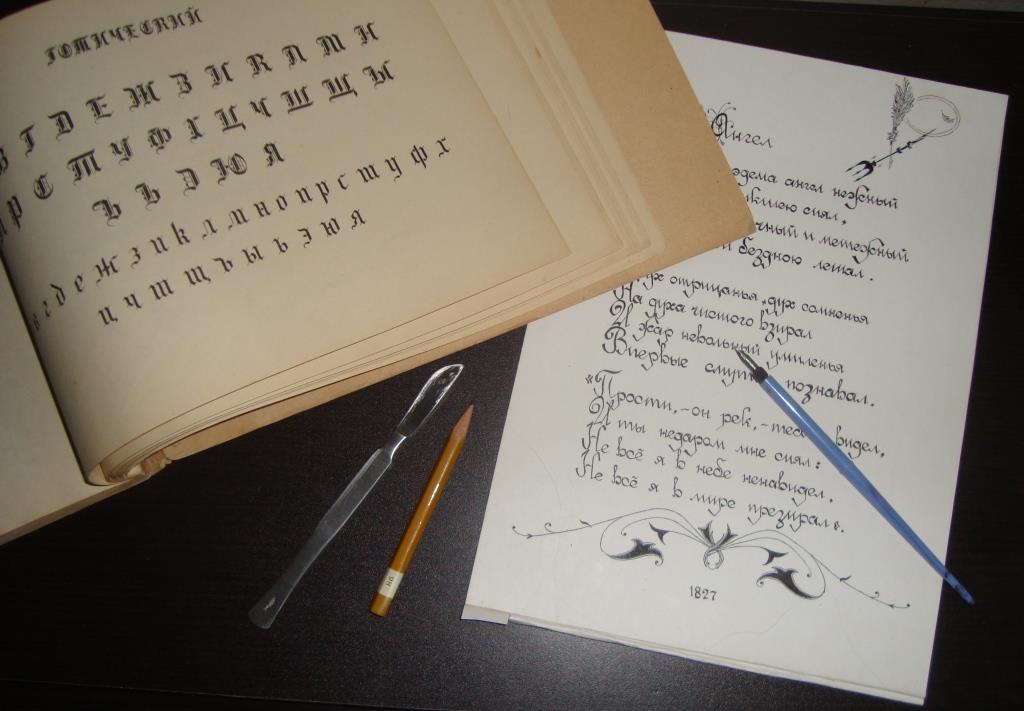 ГОТИЧЕСКИЙ
В Г Д Е Ж З И К Л М Н
Р С Т У Ф Х Ц Ч Ш Щ Ы
Ъ Ь Э Ю Я
в г д е ж з и к л м н о п р с т у ф х
ц ч ш щ ъ ы ь э ю я
Ангел
эдема ангел нежный
сиял,
и метежный
бездною летал.
Дух отрицанья, дух сомненья
На духа чистого взирал
И жар невольный умиленья
Впервые познавал.
«Прости, -он рек,- видел,
И ты недаром мне сиял:
Не всё я в небе ненавидел,
Не всё я в мире презирал».
1827